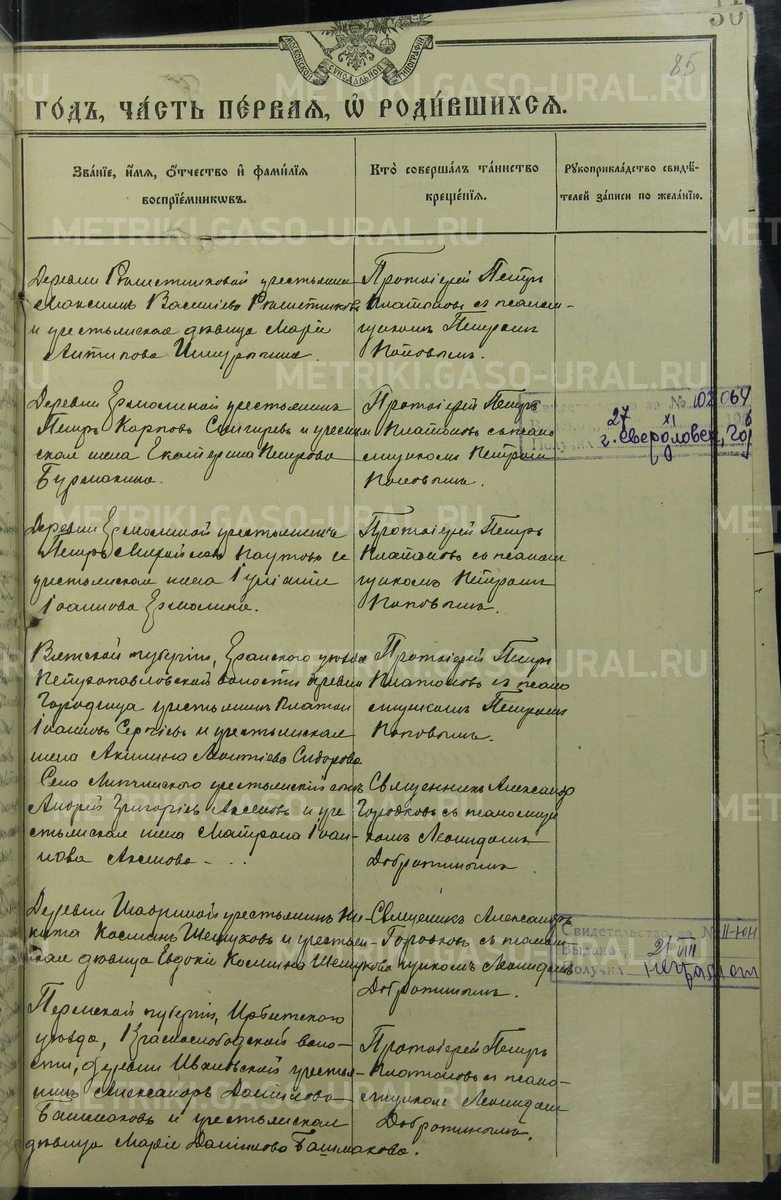 МОСКОВСКОЙ СѴНОДАЛЬНОЙ ТИПОГРАФІИ
85
ГО́ДЪ, ЧА́СТЬ ПЕ́РВАЯ, Ѡ҆ РОДИ́ВШИХСЯ.
Зва́нїе, и҆́мя, ѻ҆́тчество и҆ фами́лїя воспрїе́мникѡвъ.
Кто̀ соверша́лъ та́инство креще́нїя.
Рꙋкоприкла́дство свидѣ́телей за́писи по жела́нїю.
Деревни Решетниковой крестьянинъ
Максимъ Васильевъ Решетниковъ
и крестьянская дѣвица Марія
Антипова
Протоіерей Петръ
Платоновъ съ псалом-
щикомъ Петромъ
Поповымъ.
Деревни Ермолиной крестьянинъ
Петръ Карповъ Снигиревъ и крестьян
ская жена Екатерина Петрова
Бурмакина.
Протоіерей Петръ
Платоновъ съ псалом
щикомъ Петромъ
Поповымъ.
№ 102064
27 XI
г. Свердловск,
Деревни Ермолиной крестьянинъ
Петръ Паутовъ и
крестьянская жена Іуліанія
Іоаннова Ермолина.
Протоіерей Петръ
Платоновъ съ псалом
щикомъ Петромъ
Поповымъ.
Вятской губерніи, Яранскаго уѣзда
Петропавловской волости деревни
Городища крестьянинъ Платонъ
Іоанновъ Сергѣевъ и крестьянская
жена Акилина Леонтіева Сидорова
Протоіерей Петръ
Платоновъ съ псалом
щикомъ Петромъ
Поповымъ.
Села Липчинскаго крестьянскій сынъ
Андрей Григорьевъ Аксеновъ и кре
стьянская жена Матрона Іоан
нова Аксенова
Священникъ Александръ
Городковъ съ псаломщи
комъ Леонидомъ
Добротинымъ.
Деревни крестьянинъ Ни-
кита Косминъ Шелуховъ и крестьян-
ская дѣвица Евдокія Космина Шелухова
Священникъ Александръ
Городковъ съ псалом
щикомъ Леонидомъ
Добротинымъ.
Свидетельство за №
Выдано 21 VIII
Получил неграмот
Пермской губерніи, Ирбитскаго
уѣзда, Краснослободской воло-
сти, деревни Ивановской крестья-
нинъ Александръ Даниловъ
Башмаковъ и крестьянская
дѣвица Марія Данилова Башмакова.
Протоіерей Петръ
Платоновъ съ псалом-
щикомъ Леонидомъ
Добротинымъ.
METRIKI.GASO-URAL.RU